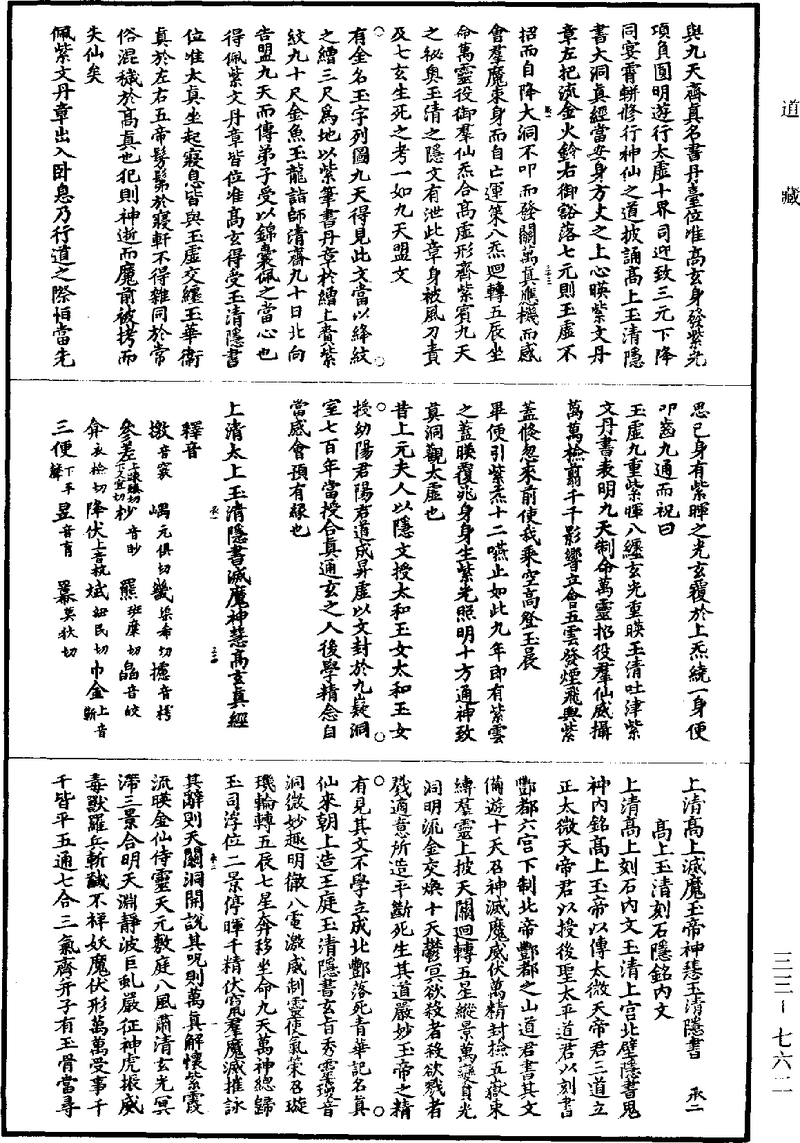 道藏
與九天齊真名書丹臺位准高玄身發紫光
項負圓明遊行太虛十界司迎致三元下降
同宴霄軿修行神仙之道披誦高上玉清隱
書大洞真經當安身方丈之上心暎紫文丹
章左把流金火鈴右御豁落七元則玉虛不
招而自降大洞不叩而發關萬真應機而感
會羣魔束身而自亡運策八炁迴轉五辰坐
命萬靈役御羣仙炁合高虛形齊紫賓九天
之秘奧玉清之隱文有泄此章身被風刀責
及七玄生死之考一如九天盟文
有金名玉字列圖九天得見此文當以絳紋
之繒三尺為地以紫筆書丹章於繒上賫紫
紋九十尺金魚玉龍詣師清齋九十日北向
告盟九天而傳弟子受以錦囊佩之當心也
得佩紫文丹章皆位准高玄得受玉清隱書
位准太真坐起寢息皆與玉虛交纏玉華衛
真於左右五帝髣髴於寢軒不得雜同於常
俗混穢於高真也犯則神逝而魔前被拷而
失仙矣
佩紫文丹章出入卧息乃行道之際恒當先
思己身有紫暉之光玄覆於上炁繞一身便
叩齒九通而祝曰
玉虛九重紫暉八纏玄光重暎玉清吐津紫
文丹書表明九天制命萬靈招役羣仙威攝
萬萬檢翦千千影響立會五雲發煙飛輿紫
蓋倏忽來前使我乘空高登玉晨
畢便引紫炁十二嚥止如此九年即有紫雲
之蓋暎覆兆身身生紫光照明十方通神致
真洞觀太虛也
昔上元夫人以隱文授太和玉女太和玉女
授幼陽君陽君道成昇虛以文封於九嶷洞
室七百年當授合真通玄之人後學精念自
當感會預有緣也
上清太上玉清隱書滅魔神慧高玄真經
釋音
檄音 嵎元俱切 幾渠希切
參差 杪音眇 羆班糜切 皛音皎
弇衣檢切 降伏上音杭 斌細民切 巾金上音
三便下平聲 昱音育 冪莫狄切
上清高上滅魔玉帝神慧玉清隱書 承二
高上玉清刻石隱銘內文
上清高上刻石內文玉清上宮北壁隱書鬼
神內銘高上玉帝以傳太微天帝君三道立
正太微天帝君以授後聖太平道君以刻書
酆都六宮下制北帝酆都之山道君書其文
備遊十天召神滅魔威伏萬精封檢五嶽束
縛羣靈上披天關迴轉五星縱景萬變貟光
洞明流金交煥十天鬱冥欲殺者殺欲戮者
戮適意所造平斷死生其道嚴妙玉帝之精
有見其文不學立成北酆落死青華記名真
仙來朝上造王庭玉清隱書玄旨秀靈瓊音
洞微妙趣明徹八電激威制靈使氣策召璇
璣輪轉五辰七星奔移坐命九天萬神總歸
玉司浮位二景停暉千精伏竄羣魔滅摧詠
其辭則天關洞開說其呪則萬真解懷紫霞
流暎金仙侍靈天元敷庭八風肅清玄光冥
滯三景合明天淵靜波巨虬嚴征神虎振威
毒獸羅兵斬馘不祥妖魔伏形萬萬受事千
千皆平五通七合三氣齊并子有玉骨當尋
三三-七六二